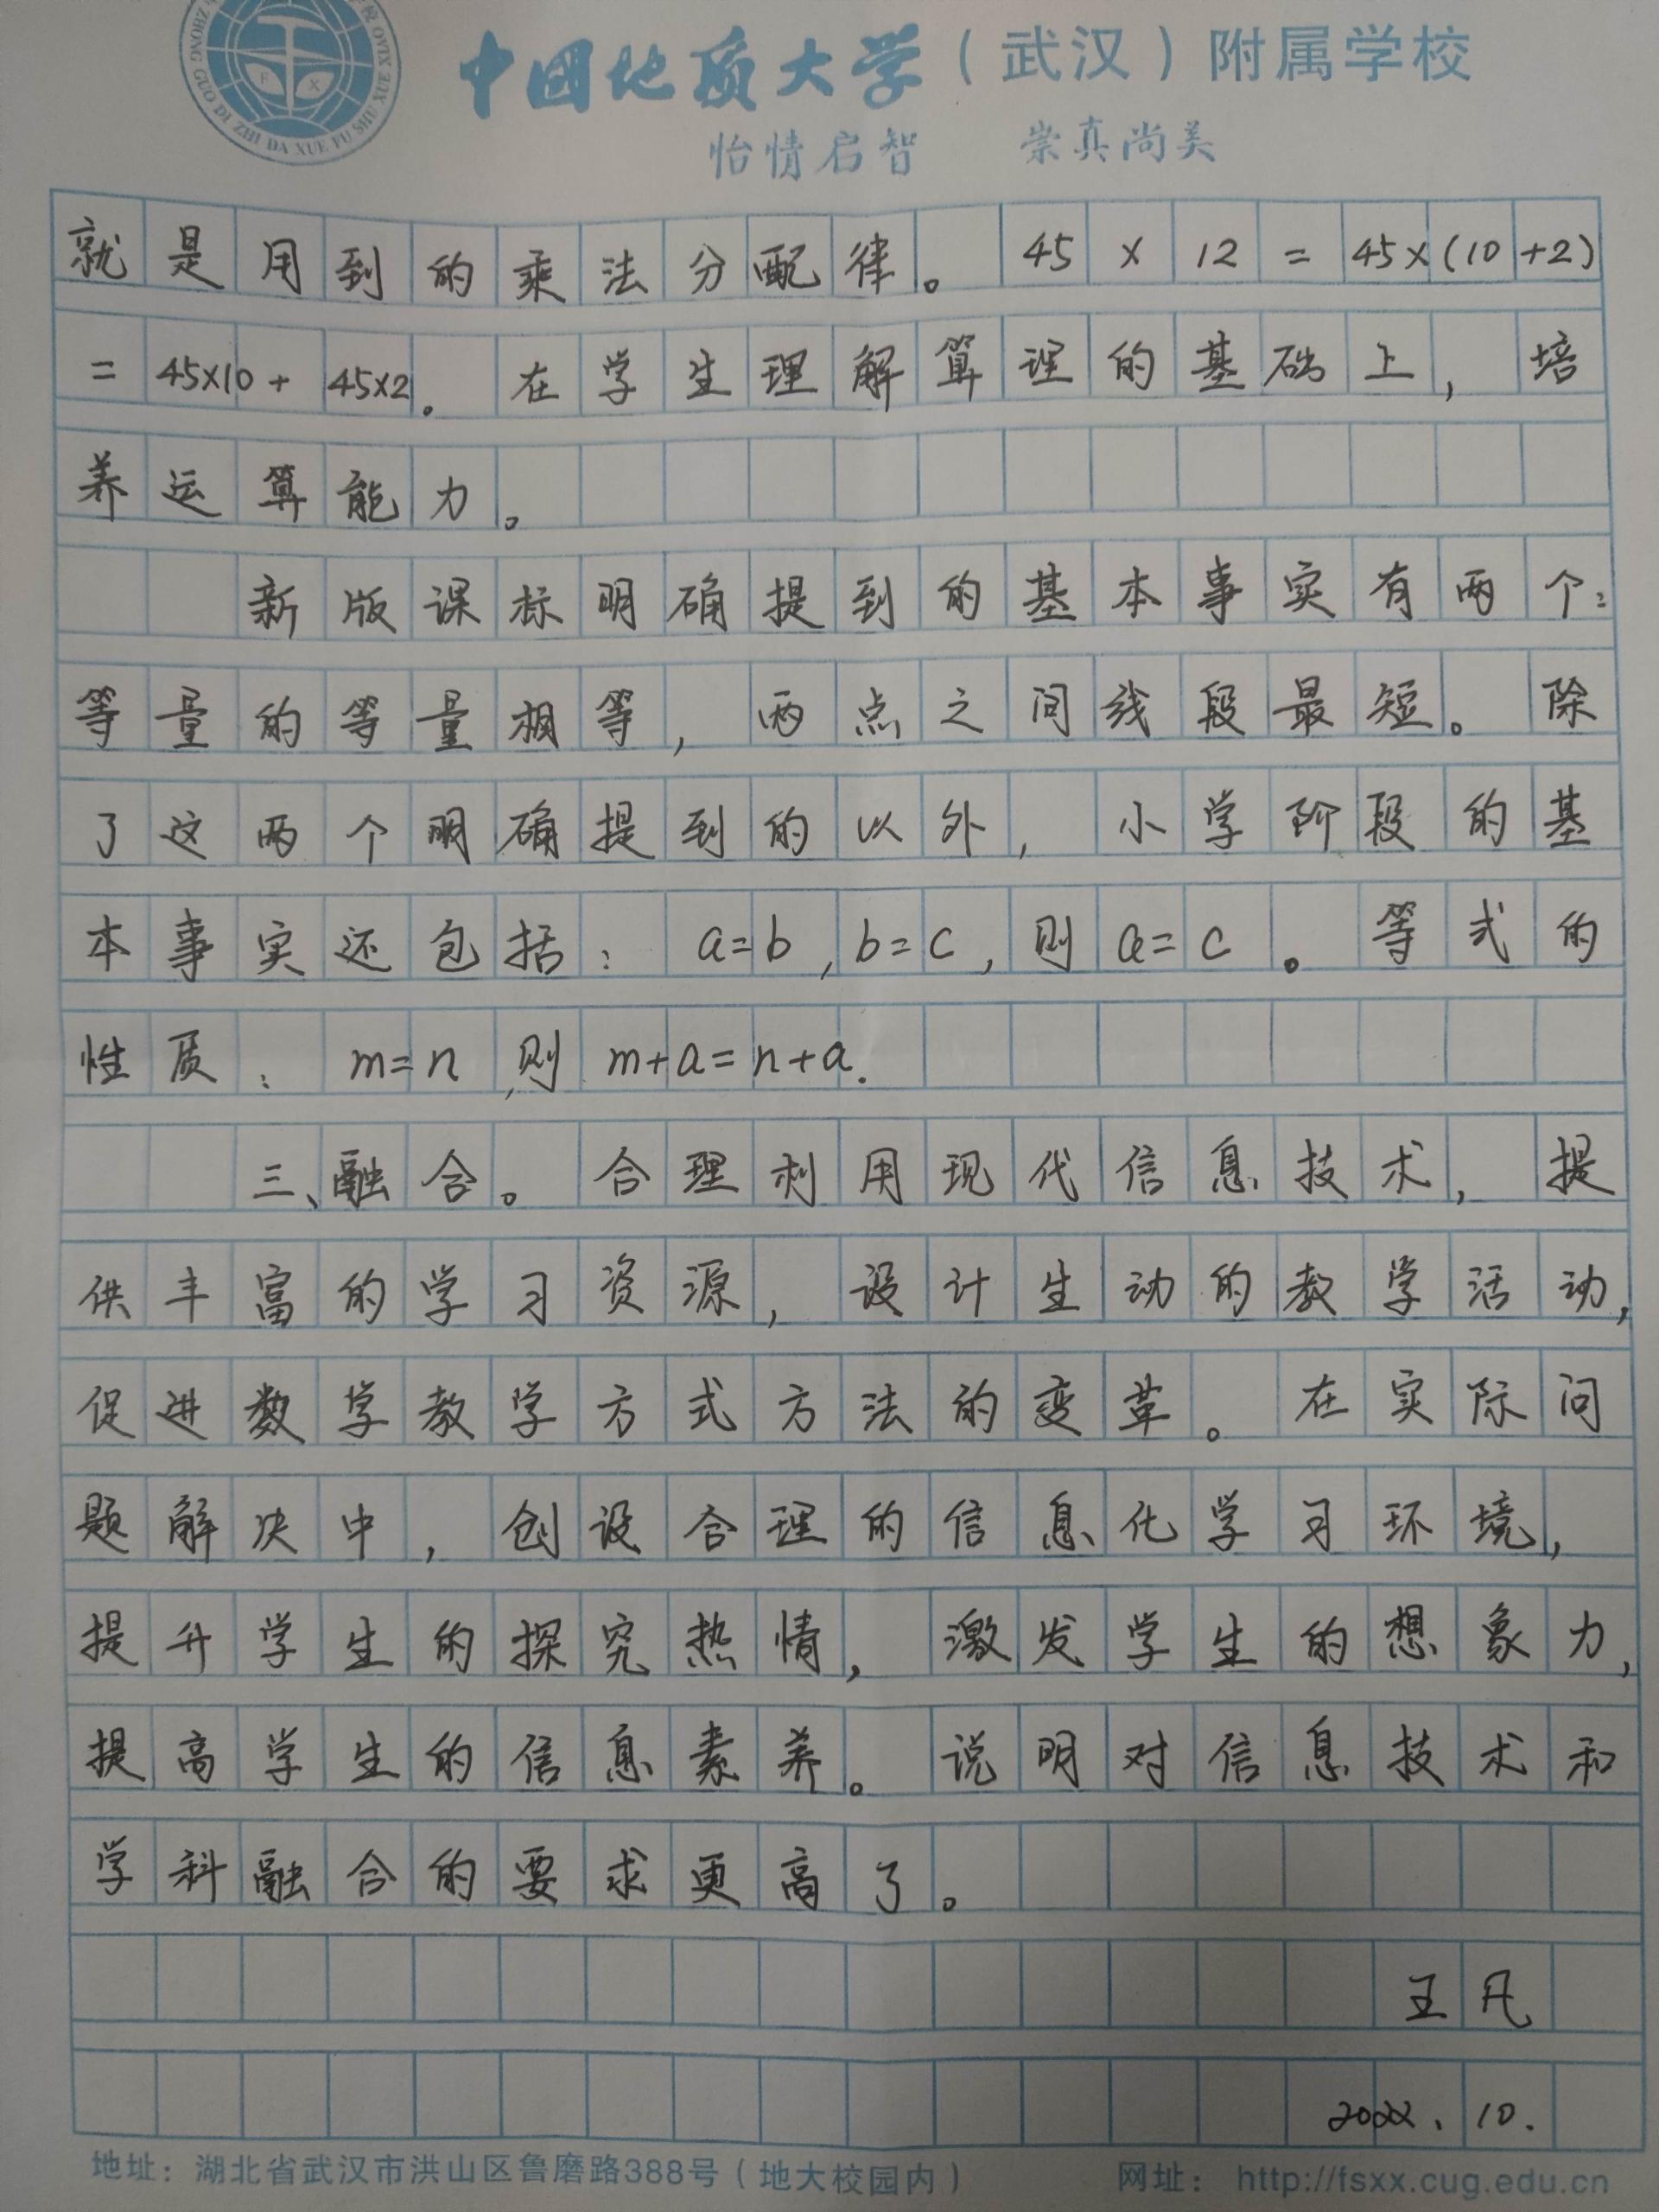 GUO DI ZHI DA XUE FU SHU XUE XIAO
F X
中国地质大学（武汉）附属学校
怡情启智 崇真尚美
就是用到的乘法分配律。45×12=45×(10+2)
=45×10+45×2。在学生理解算理的基础上，培
养运算能力。
新版课标明确提到的基本事实有两个：
等量的等量相等，两点之间线段最短。除
了这两个明确提到的以外，小学阶段的基
本事实还包括：a=b,b=c,则a=c。等式的
性质：m=n,则m+a=n+a.
三、融合。合理利用现代信息技术，提
供丰富的学习资源，设计生动的教学活动，
促进数学教学方式方法的变革。在实际问
题解决中，创设合理的信息化学习环境，
提升学生的探究热情，激发学生的想象力，
提高学生的信息素养。说明对信息技术和
学科融合的要求更高了。
王凡
2022.10.
地址：湖北省武汉市洪山区鲁磨路388号（地大校园内） 网址：http://fsxx.cug.edu.cn